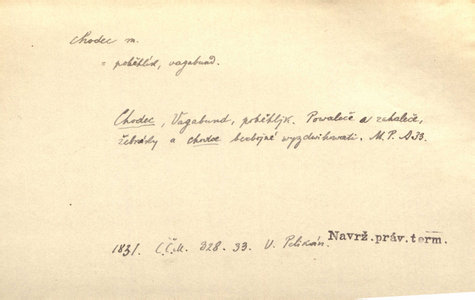 chodec m.
= poběhlík, vagabund.
Chodec, Vagabund, poběhljk. Powaleče a zahaleče,
žebráky a chodce bezbojně wyzdwihowati. M. P. A33.
1831. Č.Č.M. 328. 33. V. Pelikán. Navrž.práv.term.